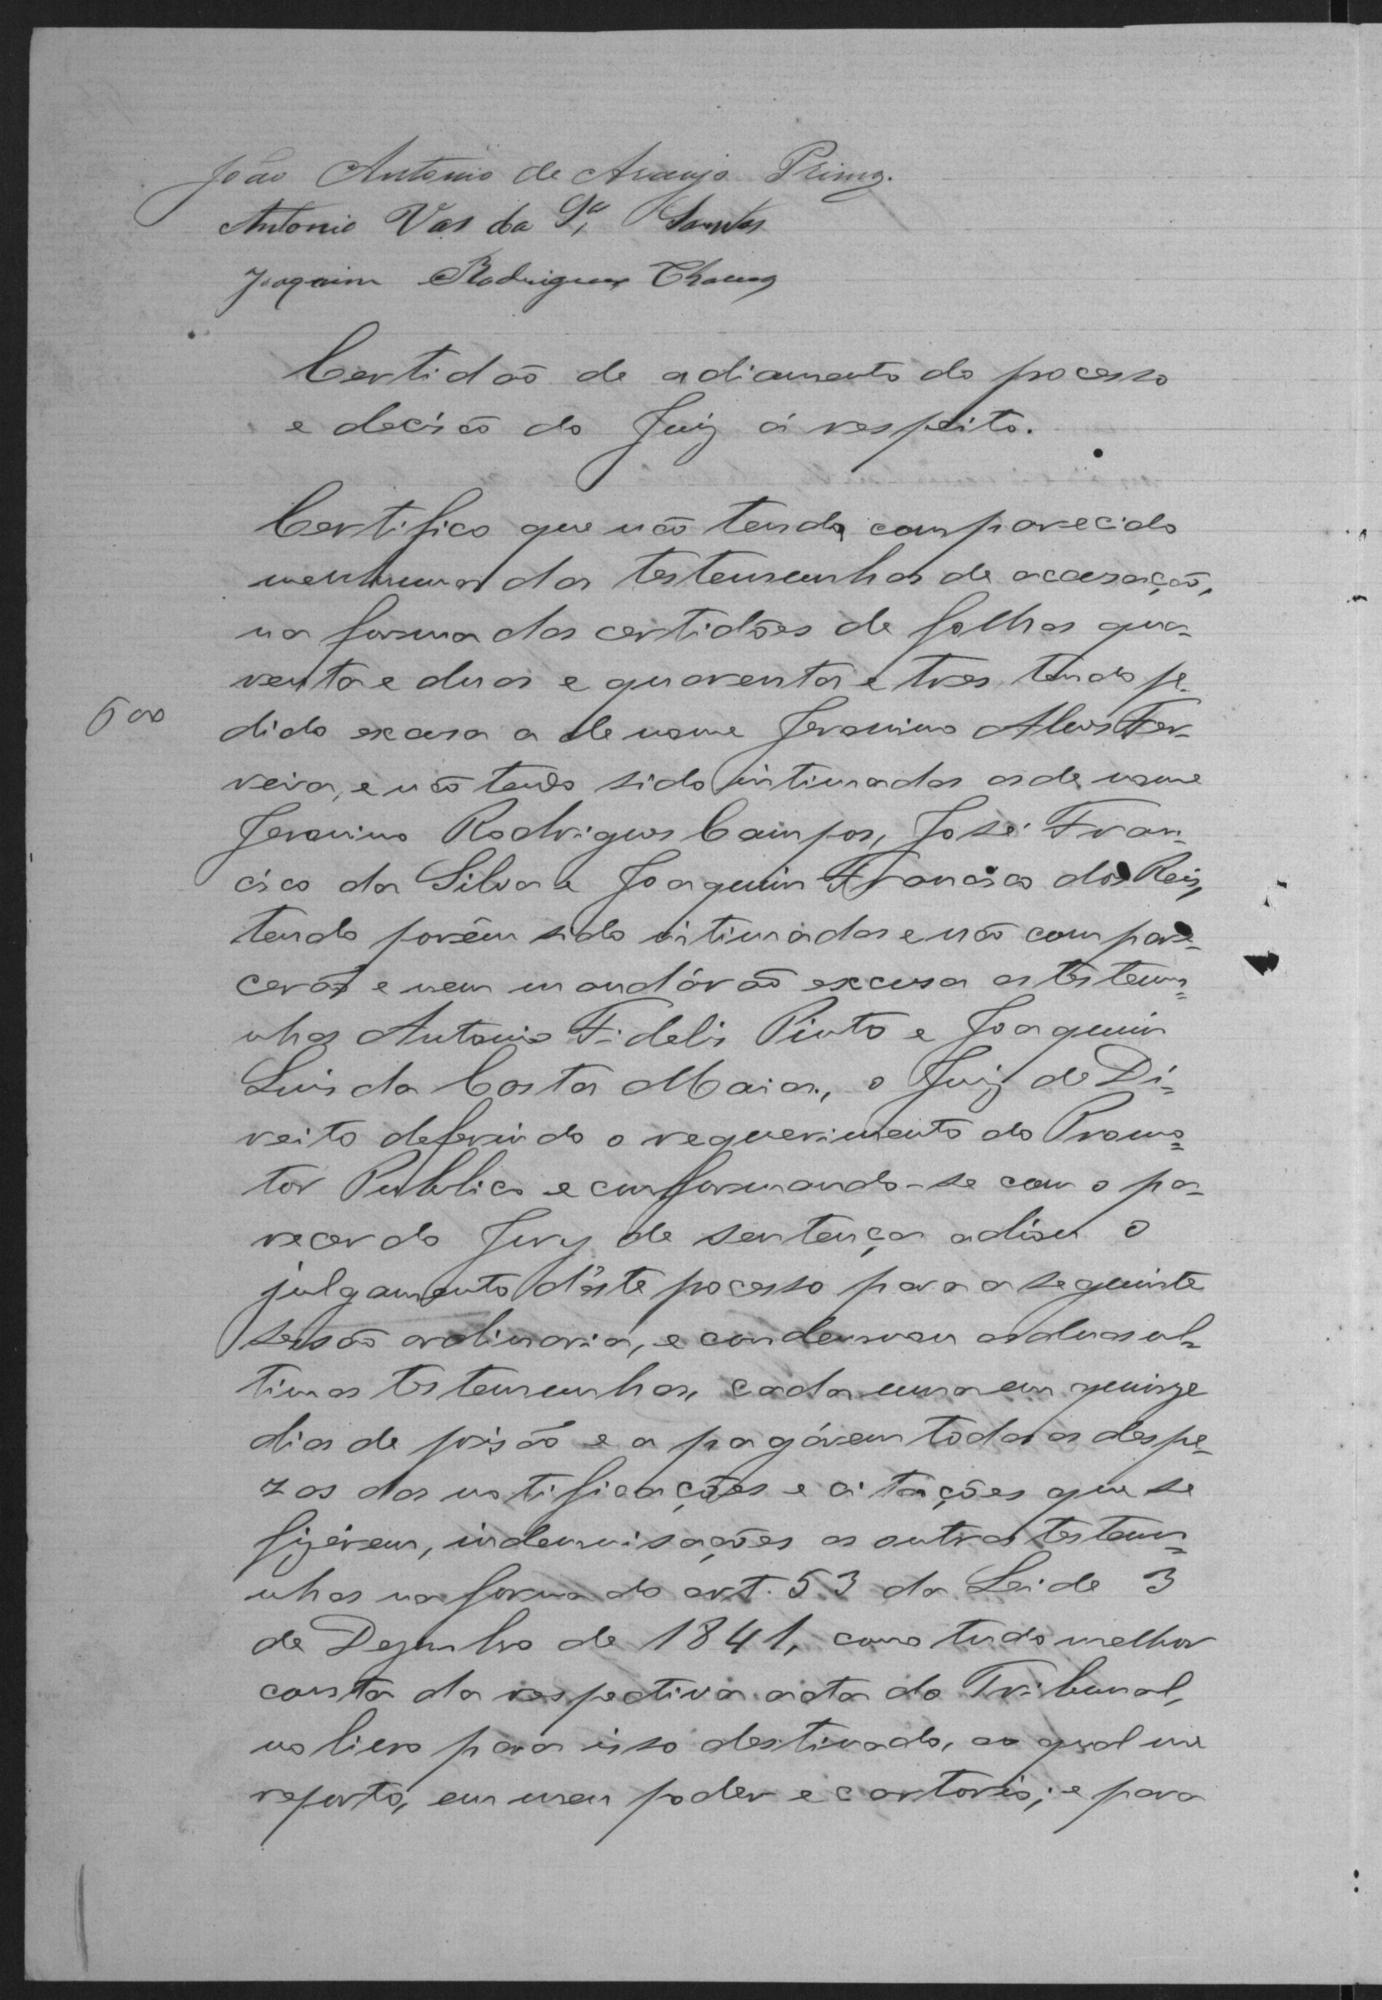 João Antonio de Araujo Primo.
Antonio Vas da Sª Santos
Joaquim Rodrigues Chaves
Certidão de adiamento do pocesso
e decisão do Juiz á respeito.
Certifico que não tendo comparecido
nenhuma das testemunhas de acusação,
na forma das certidões de folhas qua-
renta e duas e quarenta e tres, tendo pe-
600
dido excusa a de nome Jeronimo Alves Fer-
reira, e não tendo sido intimadas as de nome
Jeronimo Rodrigues Campos, José Fran-
cisco da Silva e Joaquim Francisco dos Reis,
tendo porêm sido intimadas e não compare-
cerão e nem mandárão excusa as testemu-
nhas Antonio Fidelis Pinto e Joaquim
Luis da Costa Maia, o Juiz de Di-
reito deferindo o requerimento do Promo-
tor Publico e conformando-se com o pa-
recer do Jury de sentença adiou o
julgamento d'este pocesso para a seguinte
sessão ordinaria, e condemnou as duas ul-
timas testemunhas, cada uma em quinze
dias de prisão e a pagárem todas as despe-
zas das notificações e citações que se
fizérem, indemnisações as outras testemu-
nhas na forma do art. 53 da Lei de 3
de Dezembro de 1841, como tudo melhor
consta da respectiva acta do Tribunal,
no livro para isso destinado, ao qual me
reporto, em meu poder e cartorio; e para